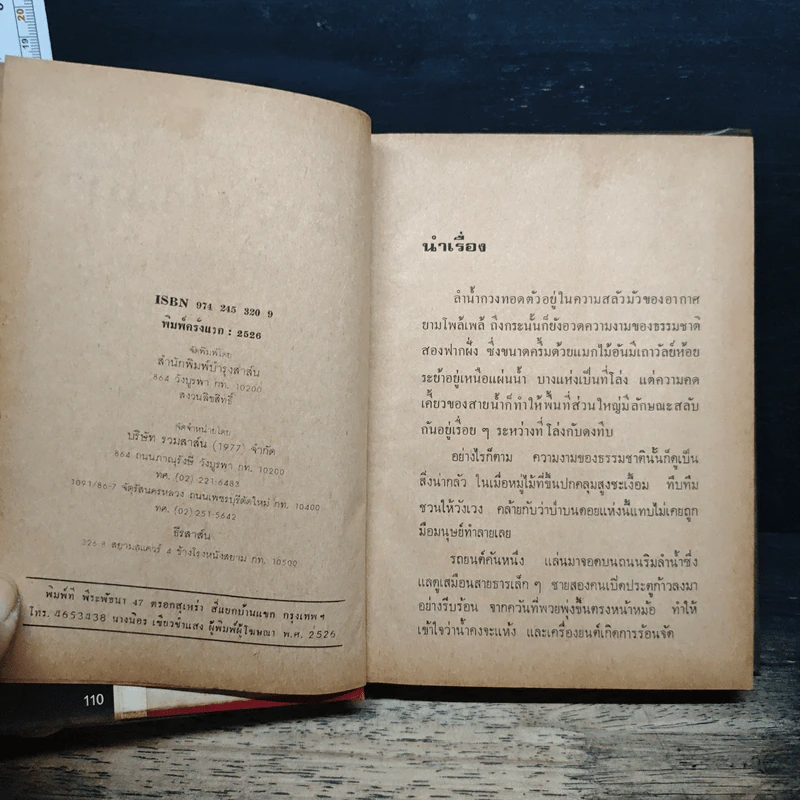 20
19
ISBN 974 245 320 9
พิมพ์ครั้งแรก : 2526
จัดพิมพ์โดย
สำนักพิมพ์บำรุงสาส์น
864 วังบูรพา กท. 10200
สงวนลิขสิทธิ์
จัดจำหน่ายโดย
บริษัท รวมสาส์น (1977) จำกัด
864 ถนนภาณุรังษี วังบูรพา กท. 10200
ทศ. (02) 221-6483
1091/86-7 จัตุรัสนครหลวง ถนนเพชรบุรีตัดใหม่ กท. 10400
ทศ. (02) 251-5642
ธีรสาส์น
226-8 สยามสแควร์ 4 ข้างโรงหนังสยาม กท. 10500
พิมพ์ที่ พีระพัธนา 47 ตรอกสุเหร่า สี่แยกบ้านแขก กรุงเทพฯ
โทร. 4653438 นางนิอร เขียวขำแสง ผู้พิมพ์ผู้โฆษณา พ.ศ. 2526
110
นำเรื่อง
ลำน้ำกวงทอดตัวอยู่ในความสลัวมัวของอากาศ
ยามโพล้เพล้ ถึงกระนั้นก็ยังอวดความงามของธรรมชาติ
สองฟากฝั่ง ซึ่งขนาดครึ้มด้วยแมกไม้อันมีเถาวัลย์ห้อย
ระย้าอยู่เหนือแผ่นน้ำ บางแห่งเป็นที่โล่ง แต่ความคด
เคี้ยวของสายน้ำก็ทำให้พื้นที่ส่วนใหญ่มีลักษณะสลับ
กันอยู่เรื่อย ๆ ระหว่างที่โล่งกับดงทึบ
อย่างไรก็ตาม ความงามของธรรมชาตินั้นก็ดูเป็น
สิ่งน่ากลัว ในเมื่อหมู่ไม้ที่ขึ้นปกคลุมสูงชะเงื้อม ทึบทึม
ชวนให้วังเวง คล้ายกับว่าป่าบนดอยแห่งนี้แทบไม่เคยถูก
มือมนุษย์ทำลายเลย
รถยนต์คันหนึ่ง แล่นมาจอดบนถนนริมลำน้ำซึ่ง
แลดูเสมือนสายธารเล็ก ๆ ชายสองคนเปิดประตูก้าวลงมา
อย่างรีบร้อน จากควันที่พวยพุ่งขึ้นตรงหน้าหม้อ ทำให้
เข้าใจว่าน้ำคงจะแห้ง และเครื่องยนต์เกิดการร้อนจัด